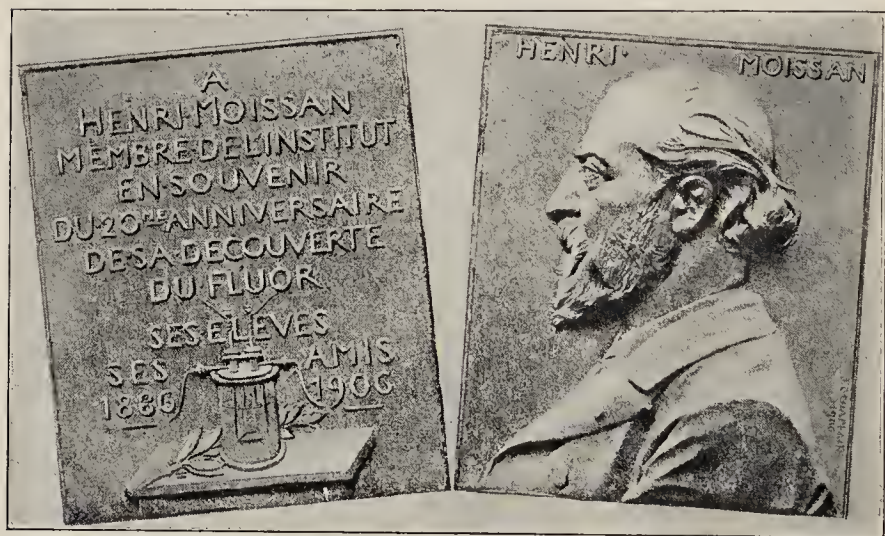 A
HENRI·MOISSAN
MEMBRE DE L'INSTITUT
EN·SOUVENIR
DU·20ME ANNIVERSAIRE
DE·SA·DECOUVERTE
DU FLUOR
SES ELEVES
SES AMIS
1886 1906
HENRI· MOISSAN